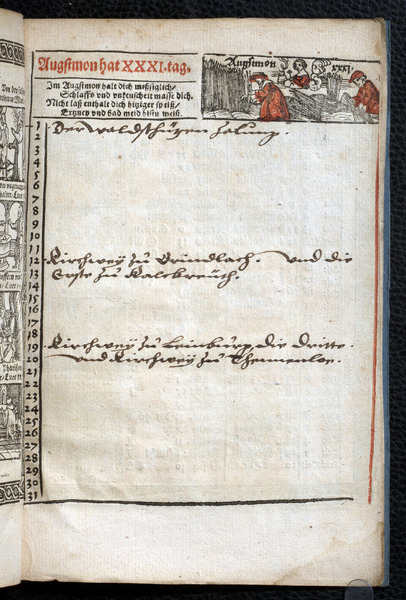 Augstmon hat XXXI. tag.
Im Augstmon halt dich messiglich,
Schlaffs vnd vnkeuscheit masse dich.
Nicht laß enthalt dich hitziger speiß,
Ertzney vnd bad meid bistu weiß.
Augstmon XXXI.
1 Der waldsthuzen
2
3
4
5
6
7
8
9
10
11
12 Kirchwey zu Grindlach. und die
13 Erste zu Kalckreuth.
14
15
16
17
18
19 Kirchwey zu Leinburg die dritte.
20 und Kirchwey zu Thennenloe.
21
22
23
24
25
26
27
28
29
30
31